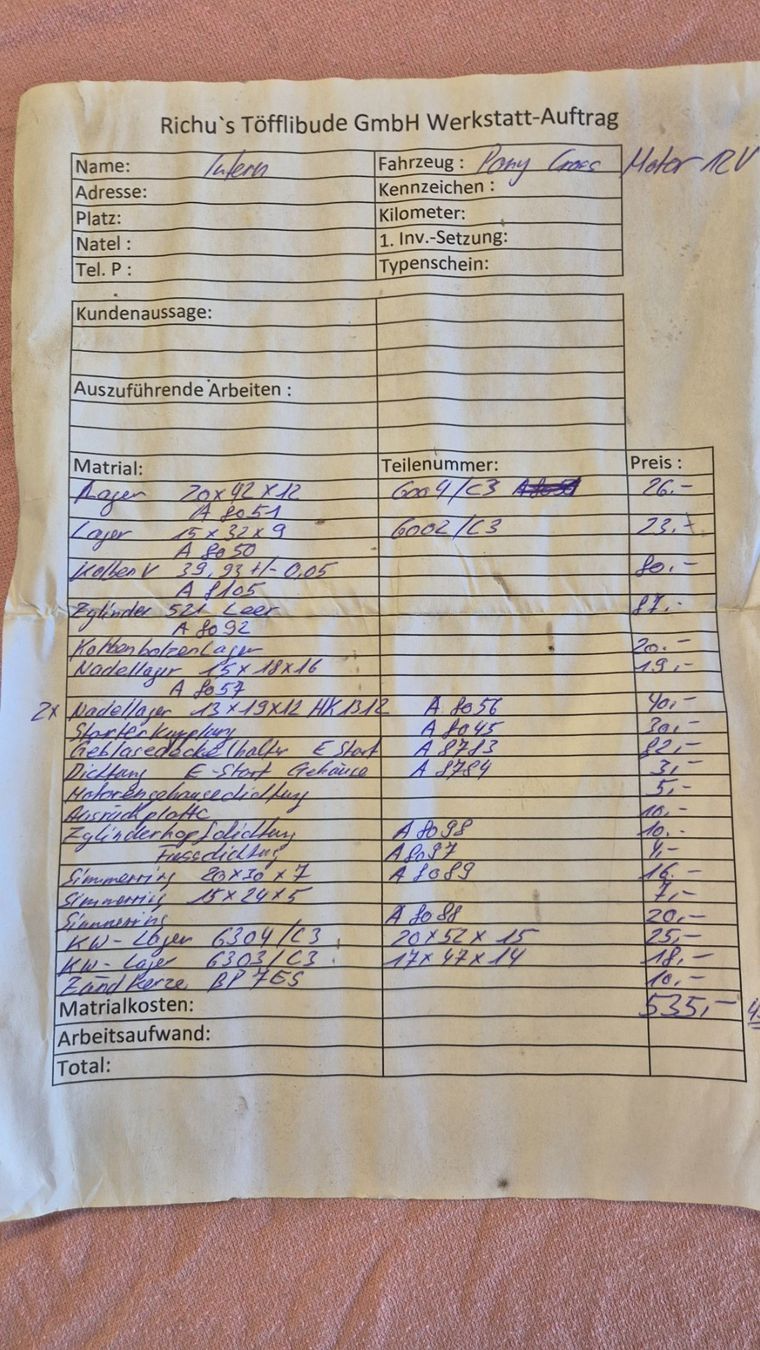 Richu`s Töfflibude GmbH Werkstatt-Auftrag
Name: Intern Fahrzeug : Pony Cross Motor 12V
Adresse: Kennzeichen :
Platz: Kilometer:
Natel : 1. Inv.-Setzung:
Tel. P : Typenschein:
Kundenaussage:
Auszuführende Arbeiten :
Matrial: Teilenummer: Preis :
Lager 20x42x12 6004/C3 26.-
A 8051
Lager 15x32x9 6002/C3 23.-
A 8050
Kolben V 39,93 +/- 0,05 80.-
A 8105
Zylinder 521 Leer 87.-
A 8092
Kolbenbolzenlager 20.-
Nadellager 15x18x16 19.-
A 8057
2x Nadellager 13x19x12 HK1312 A 8056 40.-
Starterkupplung A 8045 30.-
Gebläsedeckelhalter E Start A 8783 82.-
Dichtung E-Start Gehäuse A 8784 3.-
Motorengehäusedichtung 5.-
Ausrückplatte 10.-
Zylinderkopfdichtung A 8098 10.-
Fussdichtung A 8097 4.-
Simmerring 20x30x7 A 8089 16.-
Simmerring 15x24x5 7.-
Simmerring A 8088 20.-
KW-Lager 6304/C3 20x52x15 25.-
KW-Lager 6303/C3 17x47x14 18.-
Zündkerze BP7ES 10.-
Matrialkosten: 535.-
Arbeitsaufwand:
Total: